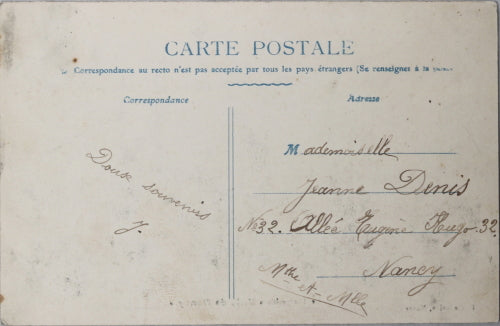 CARTE POSTALE
Correspondance au recto n'est pas acceptée par tous les pays étrangers (Se renseigner à la
Correspondance
Adresse
Mademoiselle
Jeanne Denis
No 32. Allée Eugène Hugo. 32.
Nancy
Mthe et Mlle
Doux souvenirs
J.